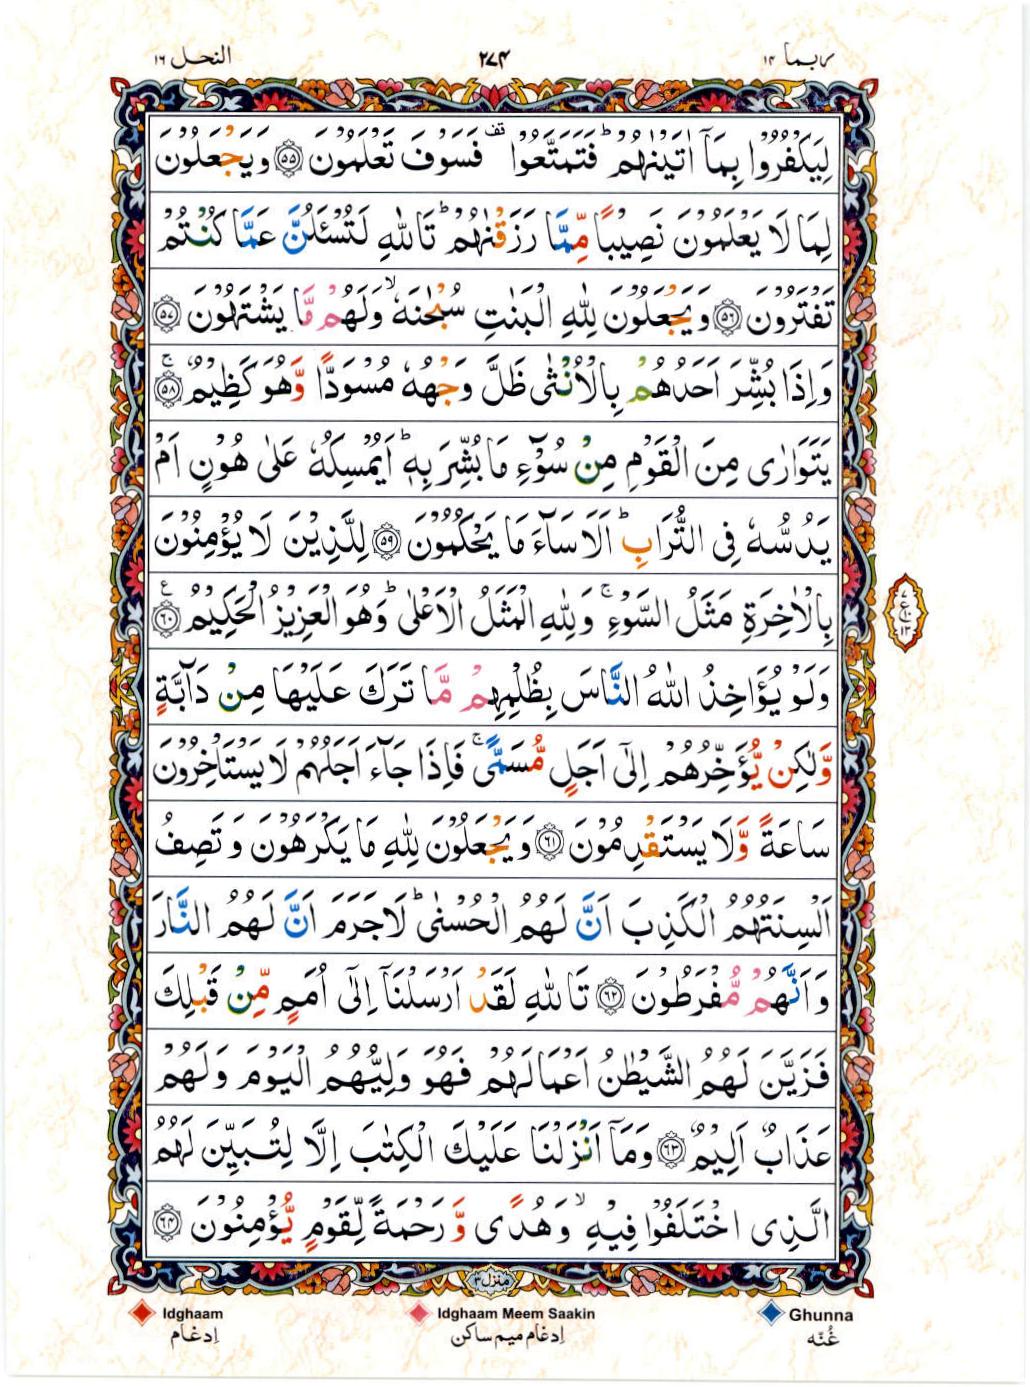 ربما ١٤
٢٧٤
النحل ١٦
لِيَكْفُرُوْا بِمَاۤ اٰتَيْنٰهُمْ ؕ فَتَمَتَّعُوْا ۥقف فَسَوْفَ تَعْلَمُوْنَ ۝٥٥ وَيَجْعَلُوْنَ
لِمَا لَا يَعْلَمُوْنَ نَصِيْبًا مِّمَّا رَزَقْنٰهُمْ ؕ تَاللّٰهِ لَتُسْـَٔلُنَّ عَمَّا كُنْتُمْ
تَفْتَرُوْنَ ۝٥٦ وَيَجْعَلُوْنَ لِلّٰهِ الْبَنٰتِ سُبْحٰنَهٗ ۙ وَلَهُمْ مَّا يَشْتَهُوْنَ ۝٥٧
وَاِذَا بُشِّرَ اَحَدُهُمْ بِالْاُنْثٰى ظَلَّ وَجْهُهٗ مُسْوَدًّا وَّهُوَ كَظِيْمٌ ۚ۝٥٨
يَتَوَارٰى مِنَ الْقَوْمِ مِنْ سُوْٓءِ مَا بُشِّرَ بِهٖ ؕ اَيُمْسِكُهٗ عَلٰى هُوْنٍ اَمْ
يَدُسُّهٗ فِى التُّرَابِ ؕ اَلَا سَآءَ مَا يَحْكُمُوْنَ ۝٥٩ لِلَّذِيْنَ لَا يُؤْمِنُوْنَ
بِالْاٰخِرَةِ مَثَلُ السَّوْءِ ۚ وَلِلّٰهِ الْمَثَلُ الْاَعْلٰى ؕ وَهُوَ الْعَزِيْزُ الْحَكِيْمُ ۝٦٠ ع
٧
ع ١٠
١٣
وَلَوْ يُؤَاخِذُ اللّٰهُ النَّاسَ بِظُلْمِهِمْ مَّا تَرَكَ عَلَيْهَا مِنْ دَآبَّةٍ
وَّلٰكِنْ يُّؤَخِّرُهُمْ اِلٰٓى اَجَلٍ مُّسَمًّى ۚ فَاِذَا جَآءَ اَجَلُهُمْ لَا يَسْتَاْخِرُوْنَ
سَاعَةً وَّلَا يَسْتَقْدِمُوْنَ ۝٦١ وَيَجْعَلُوْنَ لِلّٰهِ مَا يَكْرَهُوْنَ وَتَصِفُ
اَلْسِنَتُهُمُ الْكَذِبَ اَنَّ لَهُمُ الْحُسْنٰى ؕ لَا جَرَمَ اَنَّ لَهُمُ النَّارَ
وَاَنَّهُمْ مُّفْرَطُوْنَ ۝٦٢ تَاللّٰهِ لَقَدْ اَرْسَلْنَاۤ اِلٰٓى اُمَمٍ مِّنْ قَبْلِكَ
فَزَيَّنَ لَهُمُ الشَّيْطٰنُ اَعْمَالَهُمْ فَهُوَ وَلِيُّهُمُ الْيَوْمَ وَلَهُمْ
عَذَابٌ اَلِيْمٌ ۝٦٣ وَمَاۤ اَنْزَلْنَا عَلَيْكَ الْكِتٰبَ اِلَّا لِتُبَيِّنَ لَهُمُ
الَّذِى اخْتَلَفُوْا فِيْهِ ۙ وَهُدًى وَّرَحْمَةً لِّقَوْمٍ يُّؤْمِنُوْنَ ۝٦٤
منزل ٣
Idghaam
Idghaam Meem Saakin
Ghunna
اِدغام
اِدغام میم ساکن
غُنّه